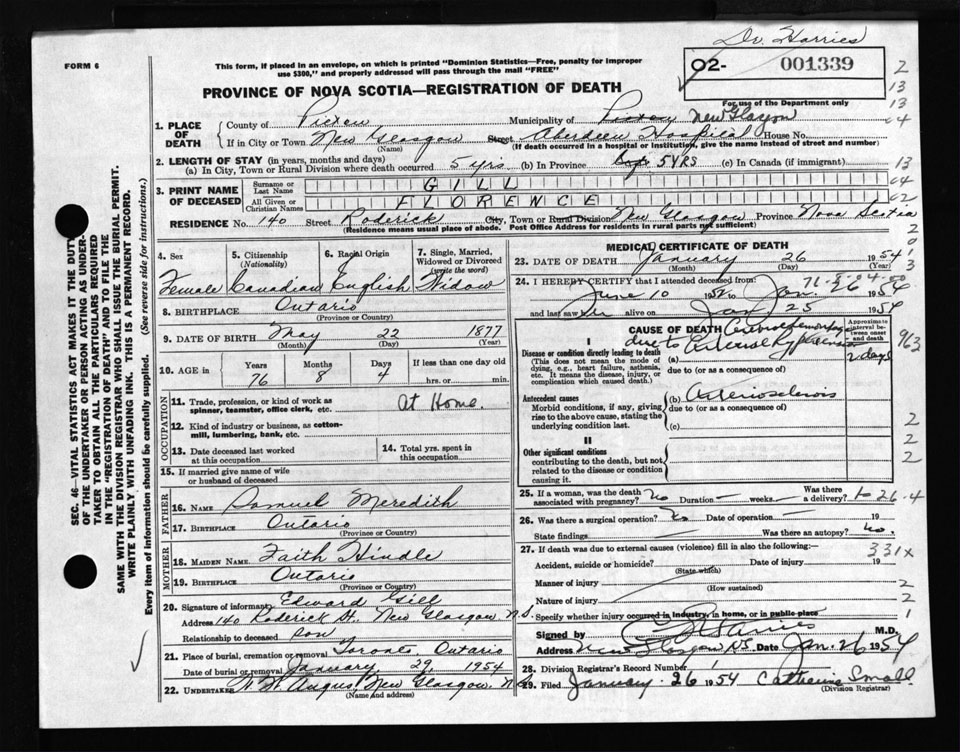 Dr. Harries
FORM 6
This form, if placed in an envelope, on which is printed "Dominion Statistics—Free, penalty for improper
use $300," and properly addressed will pass through the mail "FREE"
O2- 001339
For use of the Department only
PROVINCE OF NOVA SCOTIA—REGISTRATION OF DEATH
1. PLACE OF DEATH
County of Pictou Municipality of Pictou New Glasgow
If in City or Town New Glasgow Street Aberdeen Hospital House No.
(Name) (If death occurred in a hospital or institution, give the name instead of street and number)
2. LENGTH OF STAY (in years, months and days)
(a) In City, Town or Rural Division where death occurred 5 yrs. (b) In Province 5 YRS (c) In Canada (if immigrant)
3. PRINT NAME OF DECEASED
Surname or Last Name GILL
All Given or Christian Names FLORENCE
RESIDENCE No. 140 Street Roderick City, Town or Rural Division New Glasgow Province Nova Scotia
(Residence means usual place of abode. Post Office Address for residents in rural parts not sufficient)
4. Sex 5. Citizenship (Nationality) 6. Racial Origin 7. Single, Married, Widowed or Divorced (write the word)
Female Canadian English Widow
8. BIRTHPLACE Ontario
(Province or Country)
9. DATE OF BIRTH May 22 1877
(Month) (Day) (Year)
10. AGE in Years Months Days If less than one day old
76 8 4 hrs. or min.
OCCUPATION
11. Trade, profession, or kind of work as spinner, teamster, office clerk, etc. At Home.
12. Kind of industry or business, as cotton-mill, lumbering, bank, etc.
13. Date deceased last worked at this occupation 14. Total yrs. spent in this occupation
15. If married give name of wife or husband of deceased
FATHER
16. NAME Samuel Meredith
17. BIRTHPLACE Ontario
(Province or Country)
MOTHER
18. MAIDEN NAME Faith Hindle
19. BIRTHPLACE Ontario
(Province or Country)
20. Signature of informant Edward Gill
Address 140 Roderick St. New Glasgow N.S.
Relationship to deceased son
21. Place of burial, cremation or removal Toronto, Ontario
Date of burial or removal January 29, 1954
22. UNDERTAKER Angus, New Glasgow. N.S.
(Name and address)
MEDICAL CERTIFICATE OF DEATH
23. DATE OF DEATH January 26 1954
(Month) (Day) (Year)
24. I HEREBY CERTIFY that I attended deceased from:
June 10 1952 to Jan. 26 1954
and last saw her alive on Jan. 25 1954
CAUSE OF DEATH Approximate interval between onset and death
I
Disease or condition directly leading to death
(This does not mean the mode of dying, e.g., heart failure, asthenia, etc. It means the disease, injury, or complication which caused death.)
(a) due to arterial hypertension 2 days
due to (or as a consequence of)
Antecedent causes
Morbid conditions, if any, giving rise to the above cause, stating the underlying condition last.
(b) Arteriosclerosis
due to (or as a consequence of)
(c)
II
Other significant conditions
contributing to the death, but not related to the disease or condition causing it.
25. If a woman, was the death associated with pregnancy? No Duration — weeks — Was there a delivery?
26. Was there a surgical operation? No Date of operation — 19
State findings — Was there an autopsy? No.
27. If death was due to external causes (violence) fill in also the following:—
Accident, suicide or homicide? Date of injury 19
(State which)
Manner of injury
(How sustained)
Nature of injury
Specify whether injury occurred in industry, in home, or in public place
Signed by Harries M.D.
Address New Glasgow NS Date Jan. 26 1954
28. Division Registrar's Record Number 1
29. Filed January 26 1954 Catherine Small
(Division Registrar)
SEC. 46—VITAL STATISTICS ACT MAKES IT THE DUTY
OF THE UNDERTAKER OR PERSON ACTING AS UNDER-
TAKER TO OBTAIN ALL THE PARTICULARS REQUIRED
IN THE "REGISTRATION OF DEATH" AND TO FILE THE
SAME WITH THE DIVISION REGISTRAR WHO SHALL ISSUE THE BURIAL PERMIT.
WRITE PLAINLY WITH UNFADING INK. THIS IS A PERMANENT RECORD.
Every item of information should be carefully supplied. (See reverse side for instructions.)
2
13
13
04
13
04
02
963
2
2
2
26.4
331x
2
2
1